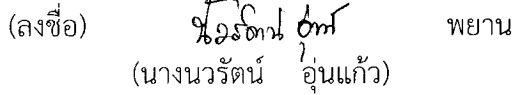 (ลงชื่อ) นวรัตน์ อุ่นแก้ว พยาน
(นางนวรัตน์ อุ่นแก้ว)